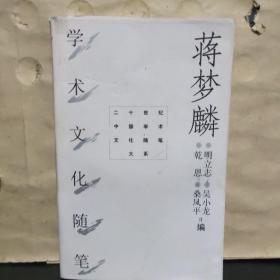 蒋梦麟
明立志 吴小龙
乾恩 桑凤平 编
二十世纪
中国学术
文化随笔
大系
学术文化随笔